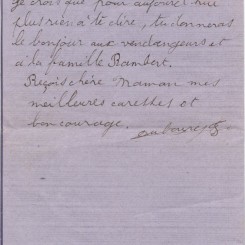 je crois que pour aujour'hui
plus rien à te dire, tu donneras
le bonjour aux vendangeurs et
à la famille Bambert.
Reçois chère Maman mes
meilleures caresses et
bon courage.